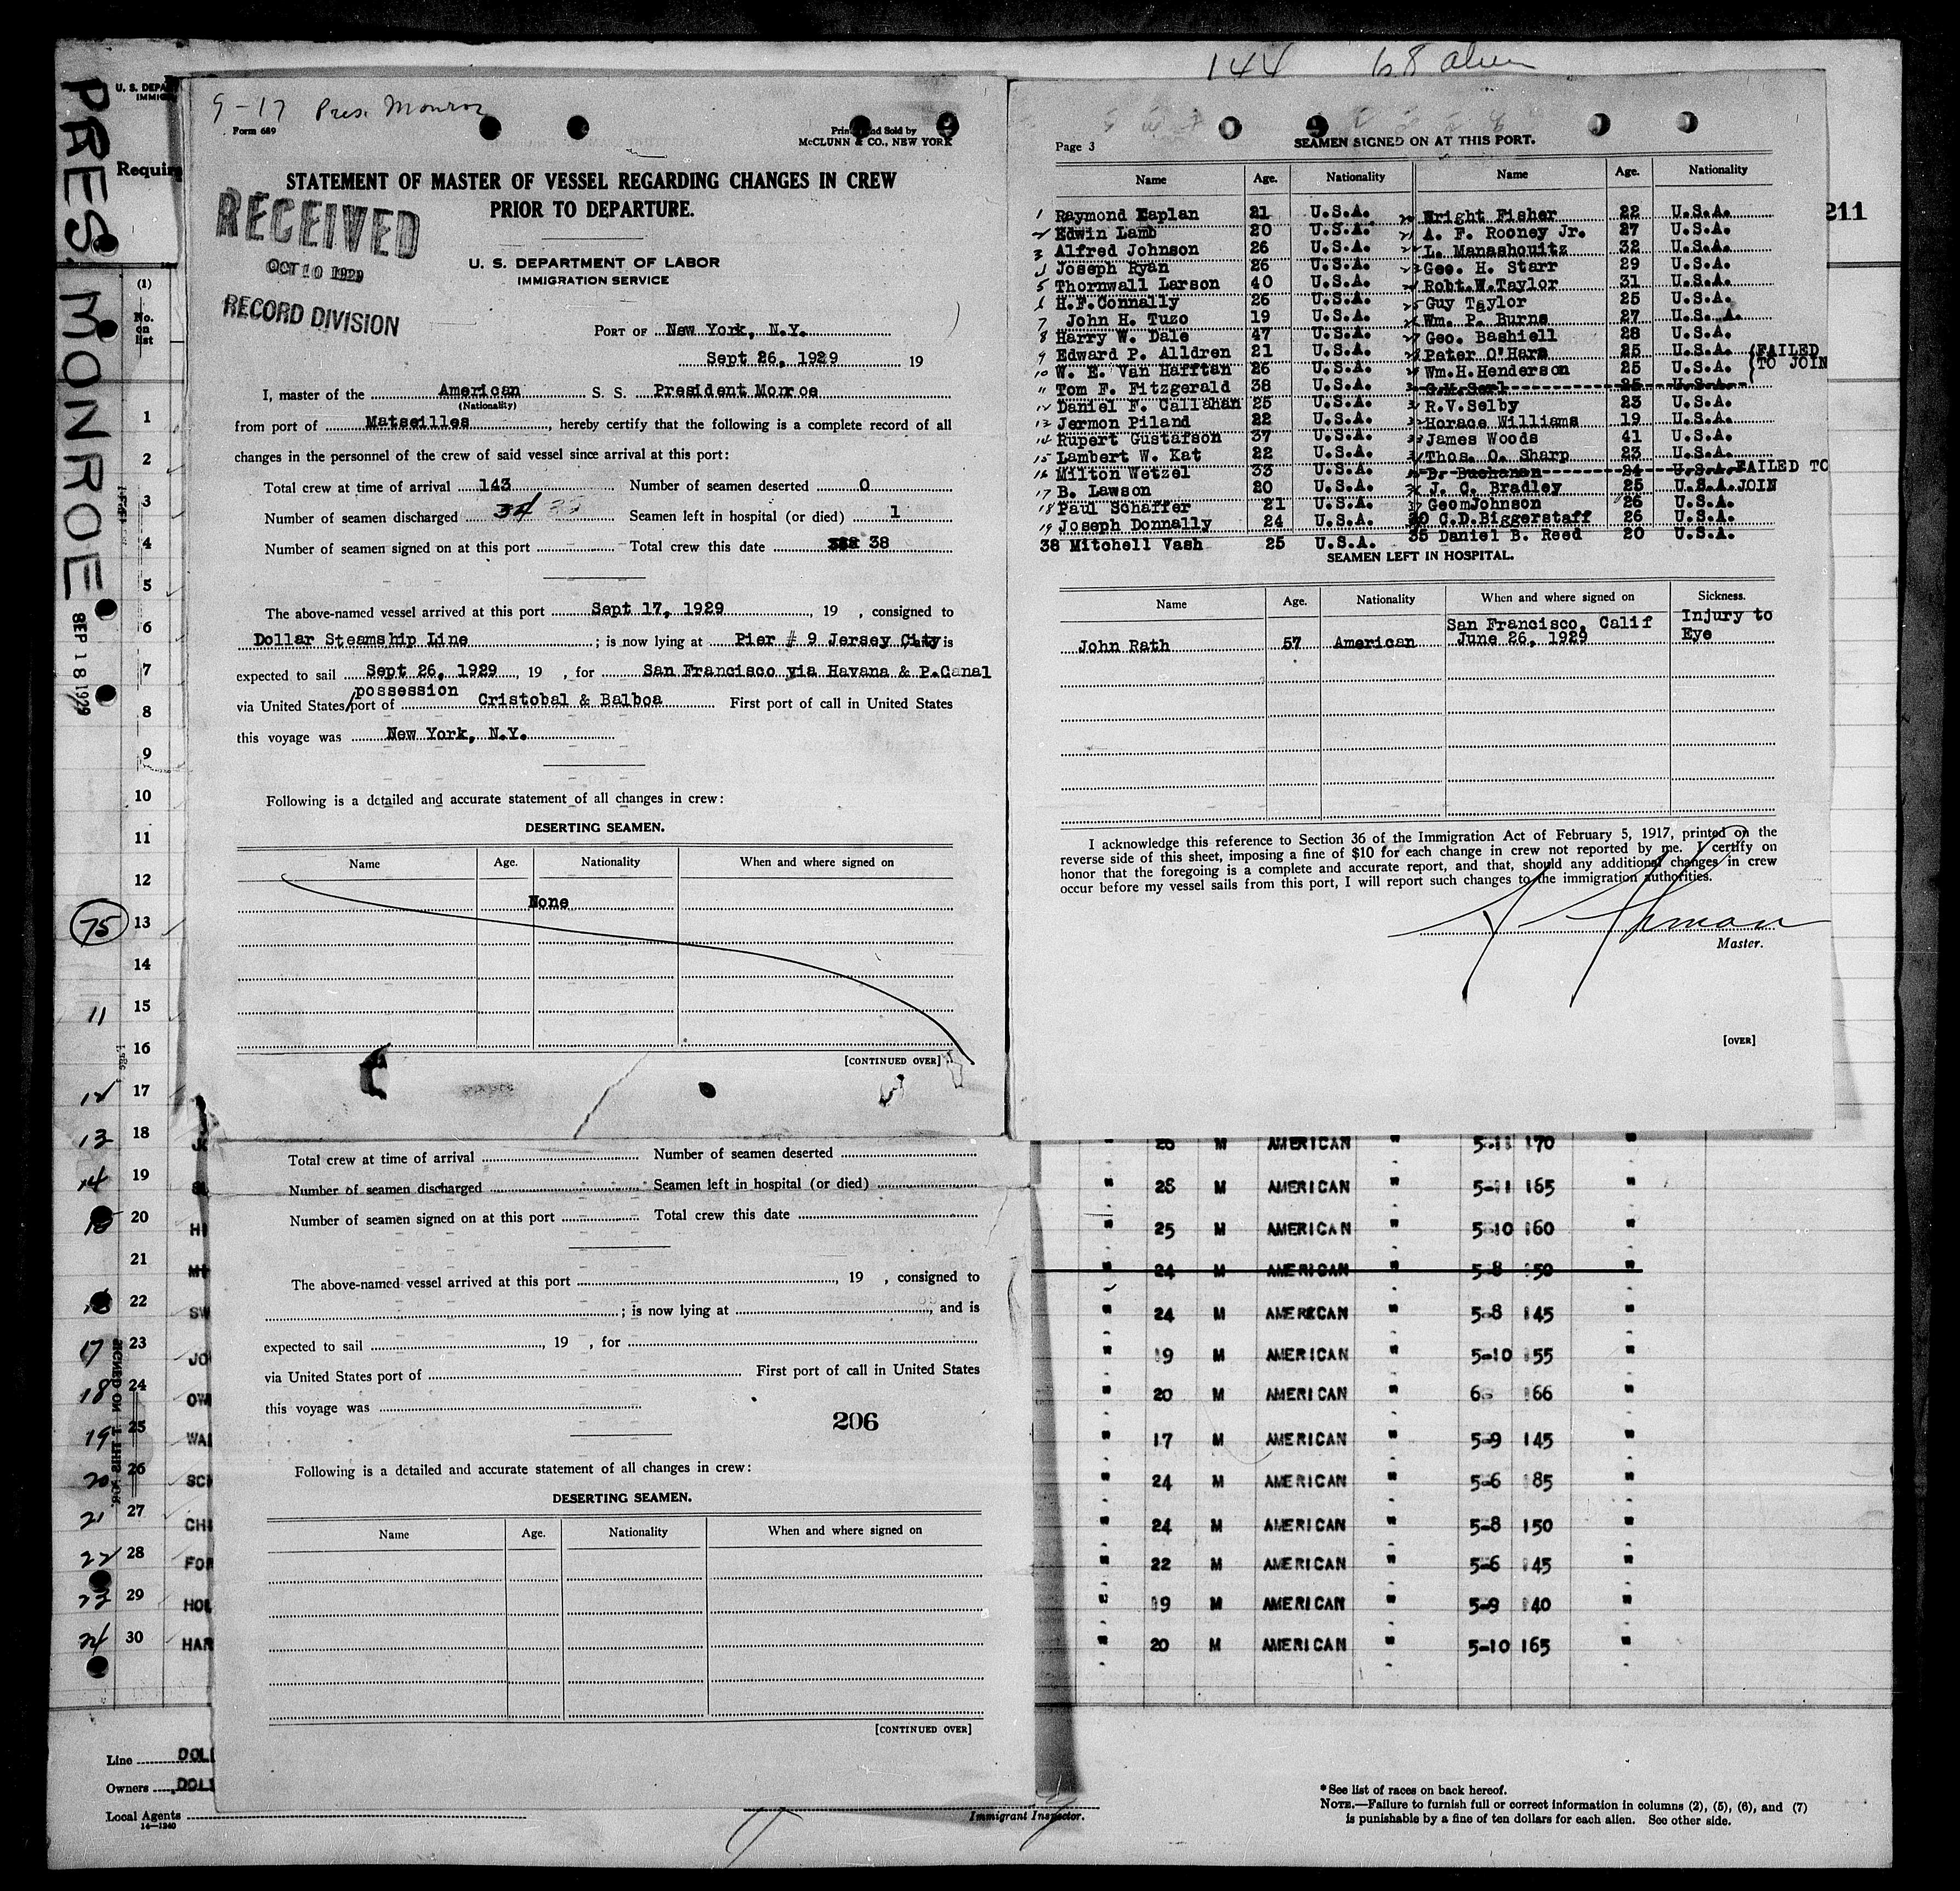 144 68 alien
PRES. MONROE
SEP 18 1929
U. S. DEPAR
IMMIG
Requir
(1)
No. on list
1
2
3
4
5
6
7
8
9
10
11
12
75 13
14
11 15
16
12 17
13 18
14 19
20
21
22
17 23
18 24
19 25
20 26
21 27
22 28
23 29
24 30
9-17 Pres. Monroe
Form 689
Printed and Sold by
McCLUNN & CO., NEW YORK
STATEMENT OF MASTER OF VESSEL REGARDING CHANGES IN CREW
PRIOR TO DEPARTURE.
RECEIVED
OCT 10 1929
RECORD DIVISION
U. S. DEPARTMENT OF LABOR
IMMIGRATION SERVICE
PORT OF New York, N.Y.
Sept 26, 1929 19
I, master of the American S. S. President Monroe
(Nationality)
from port of Matseilles, hereby certify that the following is a complete record of all
changes in the personnel of the crew of said vessel since arrival at this port:
Total crew at time of arrival 143 Number of seamen deserted 0
Number of seamen discharged 34 Seamen left in hospital (or died) 1
Number of seamen signed on at this port Total crew this date 38
The above-named vessel arrived at this port Sept 17, 1929, 19 , consigned to
Dollar Steamship Line; is now lying at Pier # 9 Jersey City is
expected to sail Sept 26, 1929, 19 , for San Francisco via Havana & P.Canal
possession
via United States/port of Cristobal & Balboa First port of call in United States
this voyage was New York, N.Y.
Following is a detailed and accurate statement of all changes in crew:
DESERTING SEAMEN.
Name Age. Nationality When and where signed on
None
[CONTINUED OVER]
Total crew at time of arrival Number of seamen deserted
Number of seamen discharged Seamen left in hospital (or died)
Number of seamen signed on at this port Total crew this date
The above-named vessel arrived at this port , 19 , consigned to
; is now lying at , and is
expected to sail , 19 , for
via United States port of First port of call in United States
this voyage was
206
Following is a detailed and accurate statement of all changes in crew:
DESERTING SEAMEN.
Name Age. Nationality When and where signed on
[CONTINUED OVER]
Page 3
SEAMEN SIGNED ON AT THIS PORT.
Name Age. Nationality Name Age. Nationality
211
1 Raymond Kaplan 21 U.S.A. 20 Wright Fisher 22 U.S.A.
2 Edwin Lamb 20 U.S.A. 21 A. F. Rooney Jr. 27 U.S.A.
3 Alfred Johnson 26 U.S.A. 22 L. Manashouitz 32 U.S.A.
4 Joseph Ryan 26 U.S.A. 23 Geo. H. Starr 29 U.S.A.
5 Thornwall Larson 40 U.S.A. 24 Robt.W.Taylor 31 U.S.A.
6 H.F.Connally 26 U.S.A. 25 Guy Taylor 25 U.S.A.
7 John H. Tuzo 19 U.S.A. 26 Wm. P. Burns 27 U.S. A.
8 Harry W. Dale 47 U.S.A. 27 Geo. Bashiell 28 U.S.A.
9 Edward P. Alldren 21 U.S.A. 28 Peter O'Hara 25 U.S.A. FAILED
10 W. E. Van Hafftan 26 U.S.A. 29 Wm.H.Henderson 25 U.S.A. TO JOIN
11 Tom F. Fitzgerald 38 U.S.A. G.M.Serl 25 U.S.A.
12 Daniel F. Callahan 25 U.S.A. R.V.Selby 23 U.S.A.
13 Jermon Piland 22 U.S.A. Horace Williams 19 U.S.A.
14 Rupert Gustafson 37 U.S.A. James Woods 41 U.S.A.
15 Lambert W. Kat 22 U.S.A. Thos. O. Sharp 23 U.S.A.
16 Milton Wetzel 33 U.S.A. D. Buchanan 24 U.S.A. FAILED TO
17 B. Lawson 20 U.S.A. J. C. Bradley 25 U.S.A. JOIN
18 Paul Schaffer 21 U.S.A. 37 GeomJohnson 26 U.S.A.
19 Joseph Donnally 24 U.S.A. C.D.Biggerstaff 26 U.S.A.
38 Mitchell Vash 25 U.S.A. 35 Daniel B. Reed 20 U.S.A.
SEAMEN LEFT IN HOSPITAL.
Name Age. Nationality When and where signed on Sickness.
John Rath 57 American San Francisco, Calif June 26, 1929 Injury to Eye
I acknowledge this reference to Section 36 of the Immigration Act of February 5, 1917, printed on the
reverse side of this sheet, imposing a fine of $10 for each change in crew not reported by me. I certify on
honor that the foregoing is a complete and accurate report, and that, should any additional changes in crew
occur before my vessel sails from this port, I will report such changes to the immigration authorities.
Master.
[OVER]
" M AMERICAN " 5-11 170 "
" 28 M AMERICAN " 5-11 165 "
" 25 M AMERICAN " 5-10 160 "
" 24 M AMERICAN " 5-8 150 "
" 24 M AMERICAN " 5-8 145 "
" 19 M AMERICAN " 5-10 155 "
" 20 M AMERICAN " 6 166 "
" 17 M AMERICAN " 5-9 145 "
" 24 M AMERICAN " 5-6 185 "
" 24 M AMERICAN " 5-8 150 "
" 22 M AMERICAN " 5-6 145 "
" 19 M AMERICAN " 5-9 140 "
" 20 M AMERICAN " 5-10 165 "
Line DOLL
Owners DOLL
Local Agents
14-1240
Immigrant Inspector.
*See list of races on back hereof.
NOTE.—Failure to furnish full or correct information in columns (2), (5), (6), and (7)
is punishable by a fine of ten dollars for each alien. See other side.